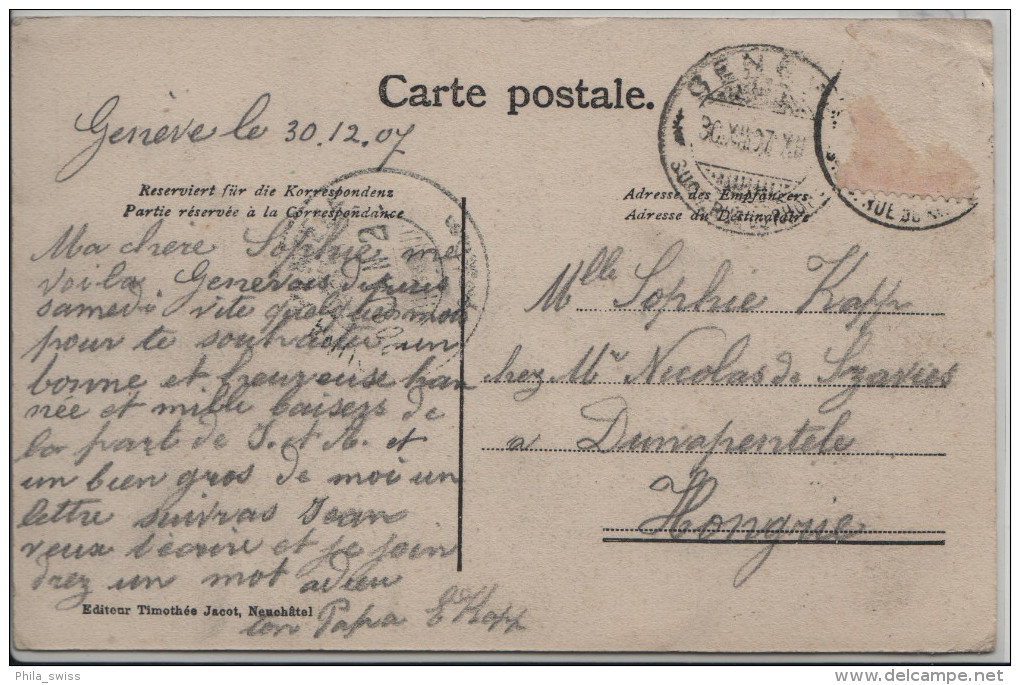 Carte postale.
Genève le 30.12.07
GENÈ
30.XII.07
RUE DU
Reserviert für die Korrespondenz
Partie réservée à la Correspondance
Adresse des Empfängers
Adresse du Destinataire
Ma chère Sophie me
voila Genevois depuis
samedi vite quelques mots
pour te souhaiter un
bonne et heureuse han
née et mille baisers de
la part de J. et A. et
un bien gros de moi un
lettre suivras Jean
veux t'ecrire et je join
drez un mot adieu
ton Papa E Kopp
Mlle Sophie Kopp
chez Mr Nicolas de Szavies
a Dunapentele
Hongrie
Editeur Timothée Jacot, Neuchâtel
Phila_swiss
delcampe.net